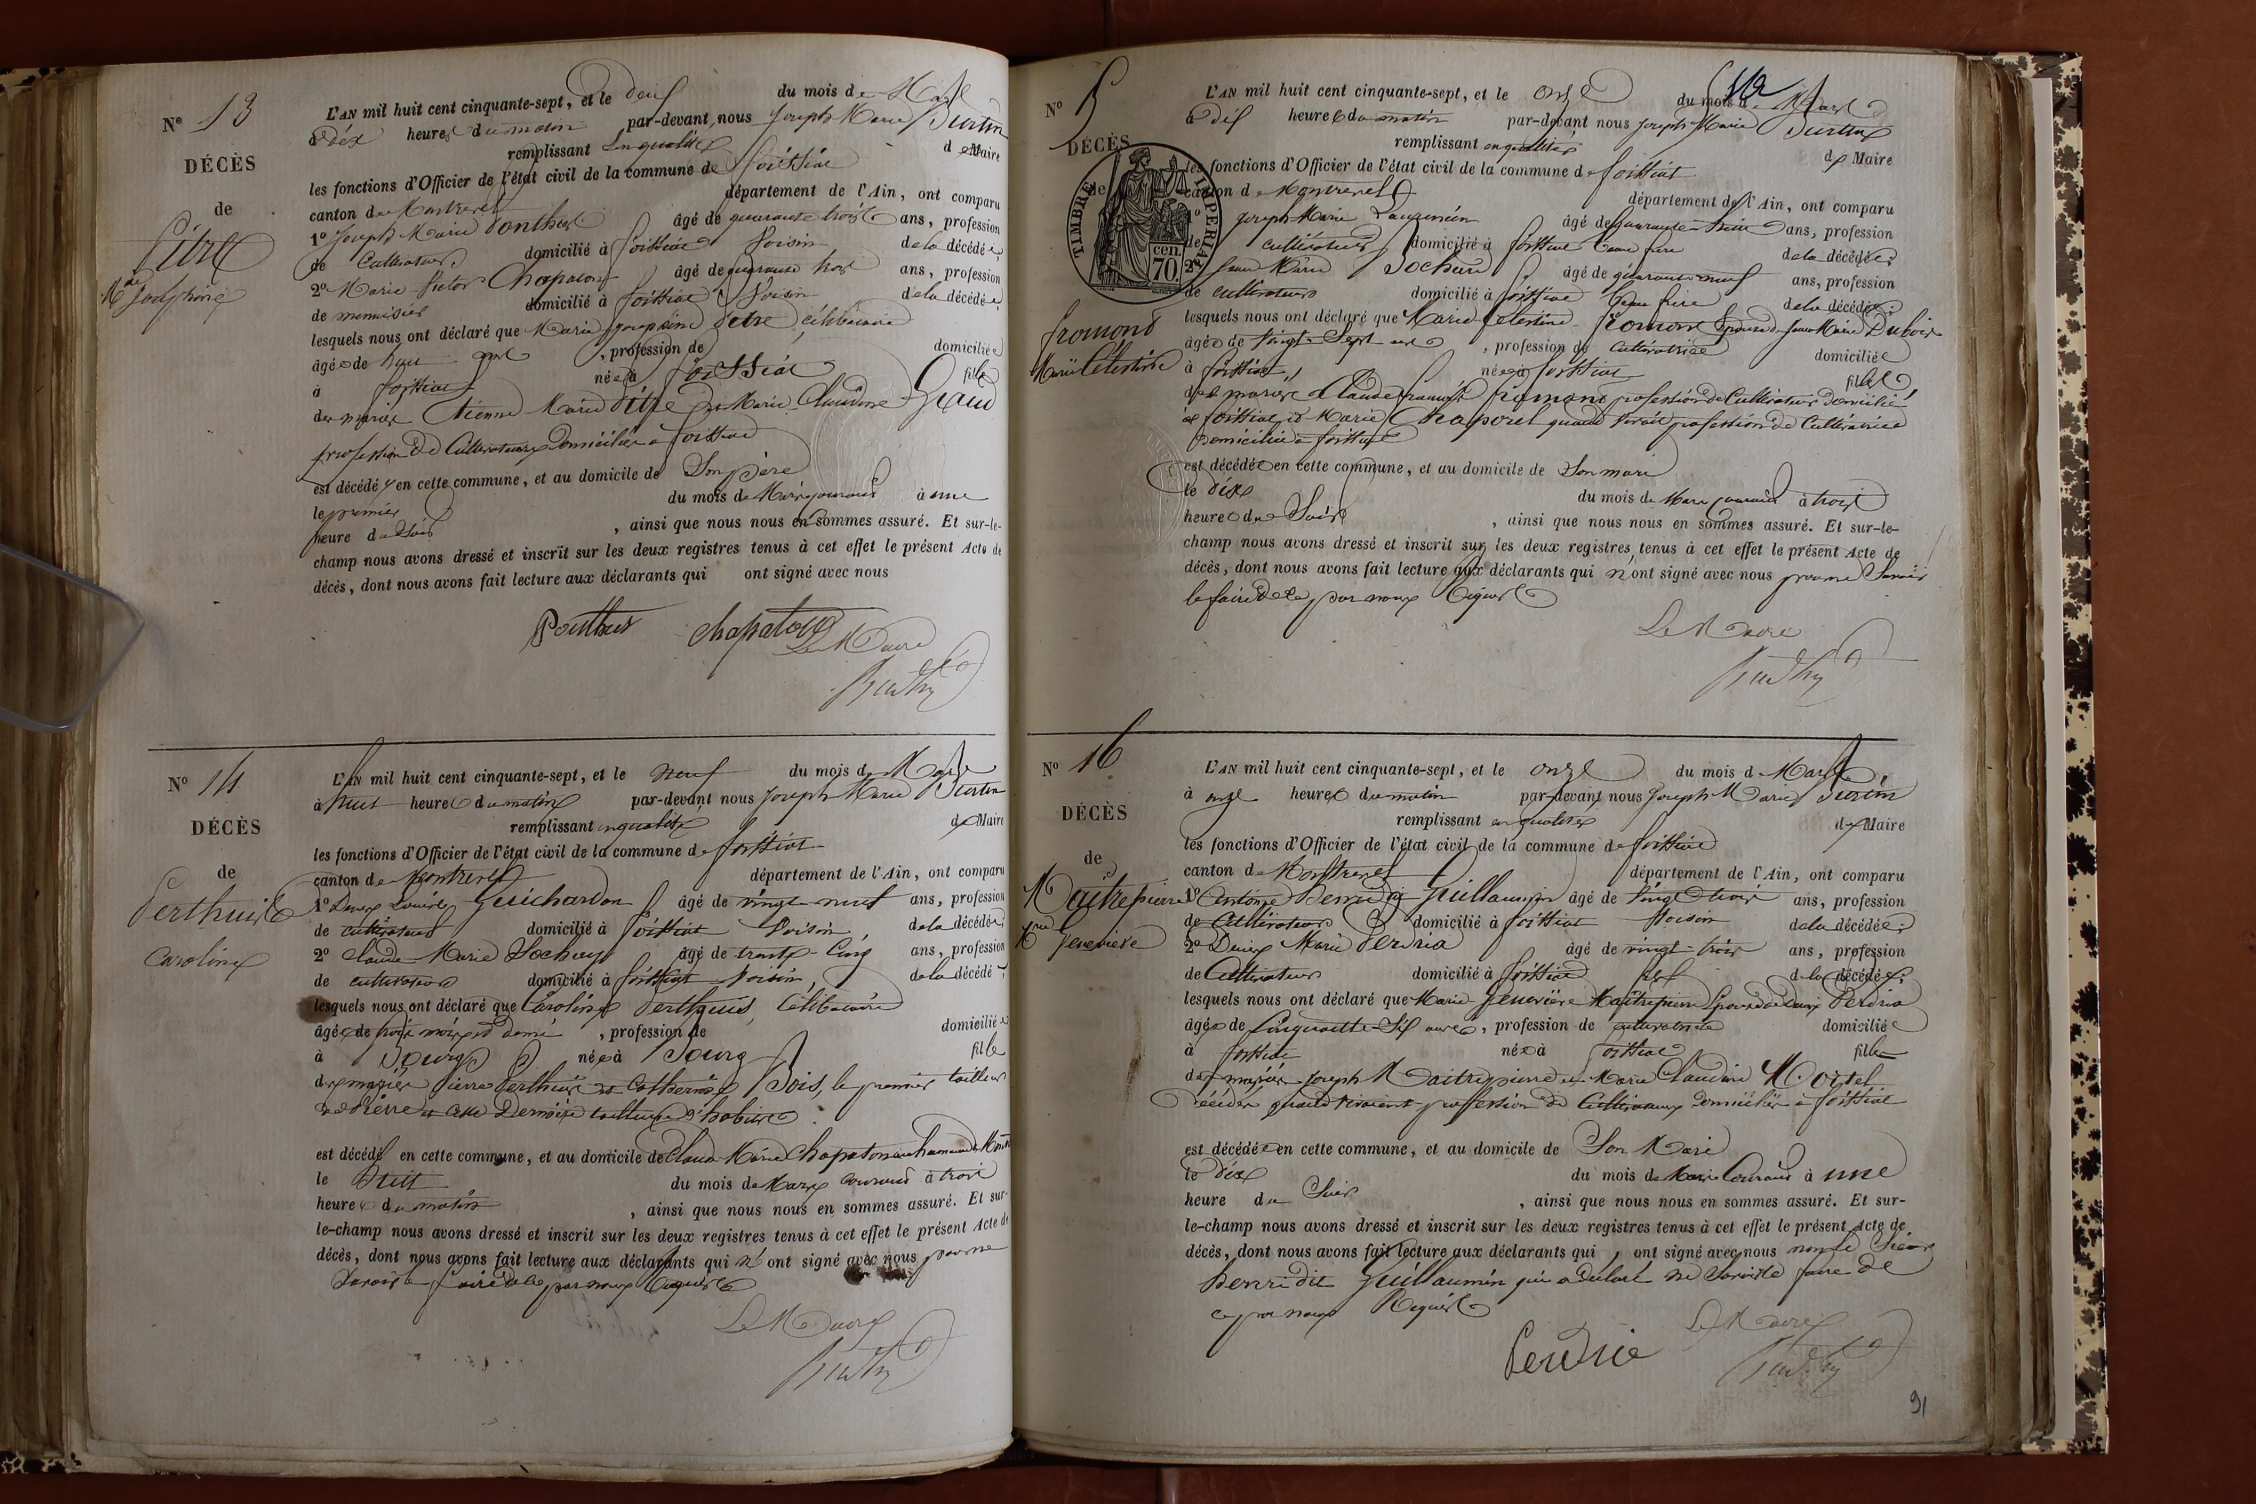 N° 13
DÉCÈS
de
Pitre
Josephine
L'AN mil huit cent cinquante-sept, et le deux du mois de Mars
à dix heures du matin par-devant nous Joseph Marie Burtin
remplissant en qualité de Maire
les fonctions d'Officier de l'état civil de la commune de foissiat
canton de Montrevel département de l'Ain, ont comparu
1° Joseph Marie Ponthus âgé de quarante trois ans, profession
de Cultivateur domicilié à foissiat Voisin de la décédée,
2° Marie Victor Chapaton âgé de quarante trois ans, profession
de menuisier domicilié à foissiat Voisin de la décédée,
lesquels nous ont déclaré que Marie Josephine Pitre, célibataire
âgée de huit ans, profession de domiciliée
à foissiat née à foissiat fille
des mariés Etienne Marie Pitre et Marie Claudine
profession de Cultivateurs domiciliés à foissiat
est décédée en cette commune, et au domicile de Son père
le premier du mois de Mars courant à une
heure du Soir, ainsi que nous nous en sommes assuré. Et sur-le-
champ nous avons dressé et inscrit sur les deux registres tenus à cet effet le présent Acte de
décès, dont nous avons fait lecture aux déclarants qui ont signé avec nous
Ponthus chapaton Le Maire
Burtin
N° 14
DÉCÈS
de
Perthuis
Caroline
L'AN mil huit cent cinquante-sept, et le neuf du mois de Mars
à huit heures du matin par-devant nous Joseph Marie Burtin
remplissant en qualité de Maire
les fonctions d'Officier de l'état civil de la commune de foissiat
canton de Montrevel département de l'Ain, ont comparu
1° Denis Louis Guichardon âgé de vingt-neuf ans, profession
de cultivateur domicilié à foissiat Voisin de la décédée,
2° Claude-Marie Bochard âgé de trente-Cinq ans, profession
de cultivateur domicilié à foissiat Voisin de la décédé
lesquels nous ont déclaré que Caroline Perthuis, Célibataire
âgée de trois mois et demi, profession de domiciliée
à Bourg née à Bourg fille
des mariés Pierre Perthuis et Catherine Bois, le premier tailleur
de Pierre et cette Dernière tailleuse d'habits
est décédé en cette commune, et au domicile de Claude Marie Chapaton au hameau de
le huit du mois de Mars courant à trois
heures du matin, ainsi que nous nous en sommes assuré. Et sur-
le-champ nous avons dressé et inscrit sur les deux registres tenus à cet effet le présent Acte de
décès, dont nous avons fait lecture aux déclarants qui n'ont signé avec nous pour ne
Savoir le faire de ce par nous Requis
Le Maire
Burtin
N° 5
DÉCÈS
de
TIMBRE IMPERIAL
70 cen.
fromont
Marie Célestine
L'AN mil huit cent cinquante-sept, et le onze du mois de Mars
à dix heures du matin par-devant nous Joseph Marie Burtin
remplissant en qualité de Maire
les fonctions d'Officier de l'état civil de la commune de foissiat
canton de Montrevel département de l'Ain, ont comparu
1° Joseph Marie âgé de quarante ans, profession
de cultivateur domicilié à foissiat beau frere de la décédée,
2° Jean Marie Bochard âgé de quarante neuf ans, profession
de cultivateur domicilié à foissiat beau frere de la décédée,
lesquels nous ont déclaré que Marie Célestine fromont Epouse de Jean Marie Dubois
âgée de Vingt-Sept ans, profession de cultivatrice domiciliée
à foissiat née à foissiat fille
des mariés Claude françois fromont profession de Cultivateur domicilié
à foissiat et Marie Chaporel quand vivait profession de Cultivatrice
domiciliée à foissiat
est décédée en cette commune, et au domicile de Son mari
le dix du mois de Mars courant à trois
heures du Soir, ainsi que nous nous en sommes assuré. Et sur-le-
champ nous avons dressé et inscrit sur les deux registres tenus à cet effet le présent Acte de
décès, dont nous avons fait lecture aux déclarants qui n'ont signé avec nous pour ne Savoir
le faire de ce par nous Requis
Le Maire
Burtin
N° 16
DÉCÈS
de
Maitrepierre
Genevieve
L'AN mil huit cent cinquante-sept, et le onze du mois de Mars
à onze heures du matin par-devant nous Joseph Marie Burtin
remplissant en qualité de Maire
les fonctions d'Officier de l'état civil de la commune de foissiat
canton de Montrevel département de l'Ain, ont comparu
1° Antoine Henri dit Guillaumin âgé de Vingt trois ans, profession
de Cultivateur domicilié à foissiat Voisin de la décédée,
2° Denis Marie Perdrix âgé de vingt-trois ans, profession
de Cultivateur domicilié à foissiat fils de la décédée,
lesquels nous ont déclaré que Marie Genevière Maitrepierre Epouse de Denis Perdrix
âgée de Cinquante-Six ans, profession de cultivatrice domiciliée
à foissiat née à foissiat fille
des mariés Joseph Maitrepierre et Marie Claudine Mortel
décédés quand vivaient profession de Cultivateurs domiciliés à foissiat
est décédée en cette commune, et au domicile de Son Mari
le dix du mois de Mars Courant à une
heure du Soir, ainsi que nous nous en sommes assuré. Et sur-
le-champ nous avons dressé et inscrit sur les deux registres tenus à cet effet le présent Acte de
décès, dont nous avons fait lecture aux déclarants qui ont signé avec nous non le Sieur
henri dit Guillaumin qui a déclaré ne Savoir le faire de
ce par nous Requis
Le Maire
Perdrie
Burtin
91